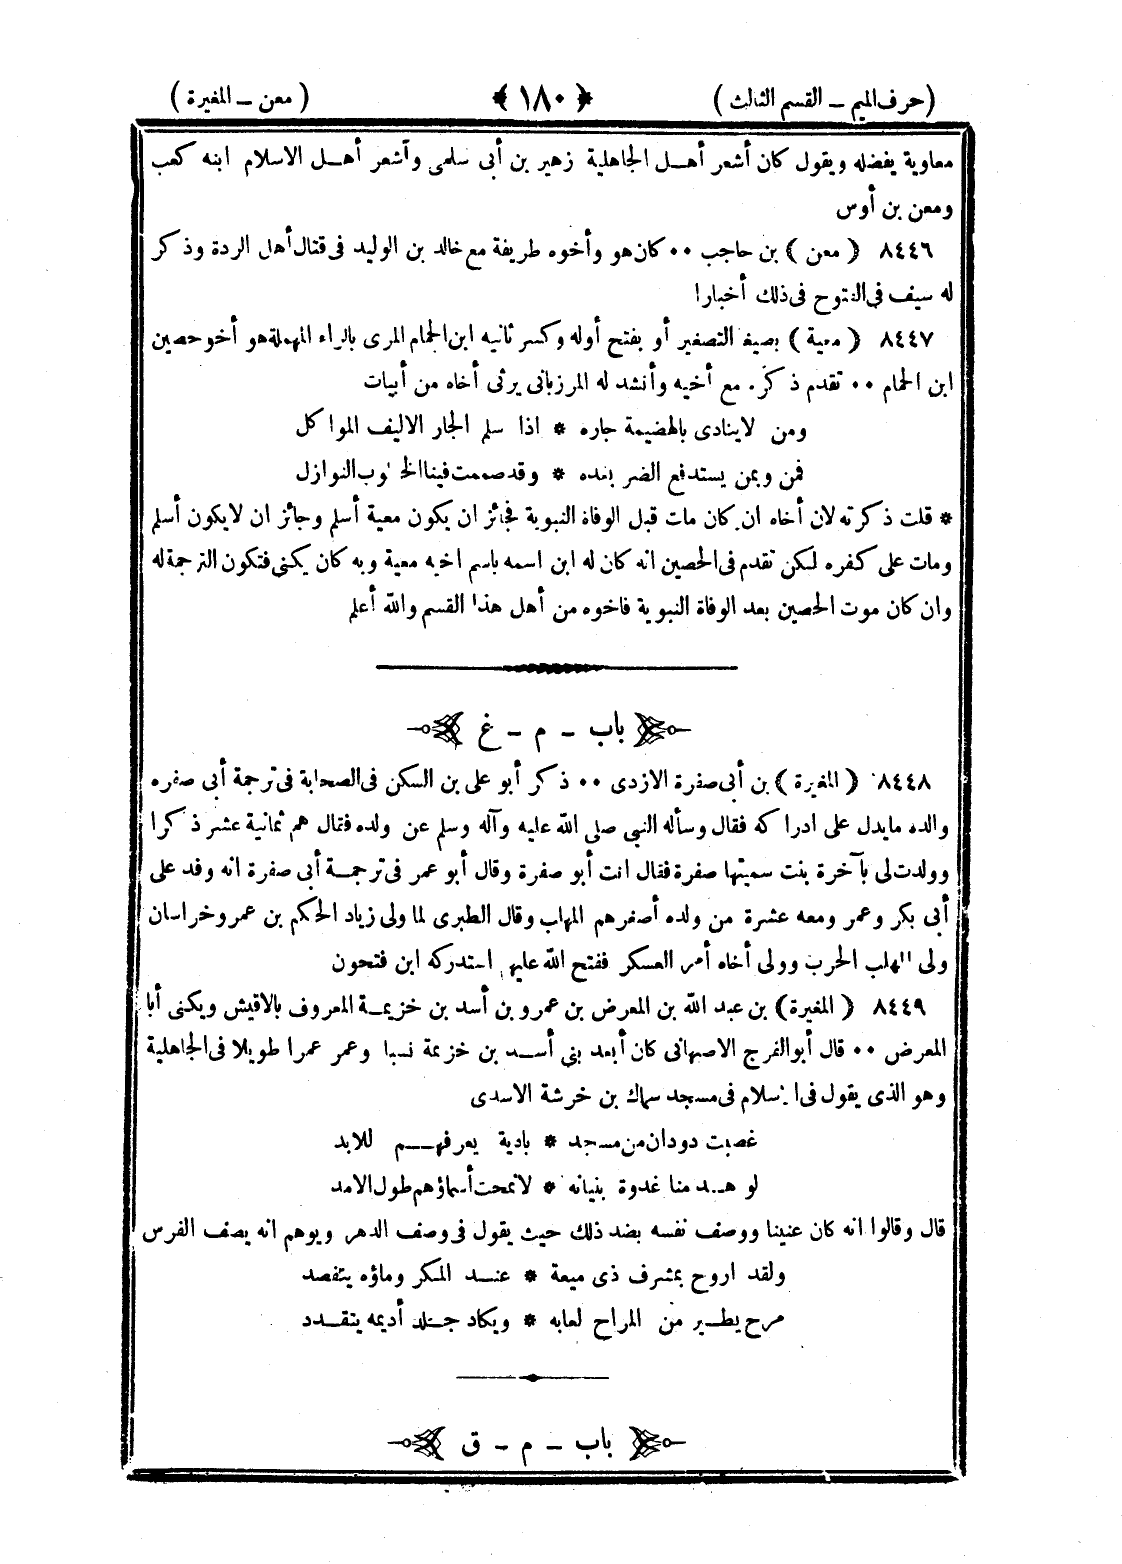 (حرف الميم – القسم الثالث) ﴿١٨٠﴾ (معن – المغيرة)
معاوية يفضله ويقول كان أشعر أهل الجاهلية زهير بن أبى سلمى وأشعر أهل الاسلام ابنه كعب
ومعن بن أوس
٨٤٤٦ ( معن ) بن حاجب ٠٠ كان هو وأخوه طريفة مع خالد بن الوليد فى قتال أهل الردة وذكر
له سيف فى الفتوح فى ذلك أخبارا
٨٤٤٧ ( معية ) بصيغة التصغير أو بفتح أوله وكسر ثانيه ابن الحمام المرى بالراء المهملة هو أخو حصين
ابن الحمام ٠٠ تقدم ذكره مع أخيه وأنشد له المرزبانى يرثى أخاه من أبيات
ومن لاينادى بالهضيمة جاره * اذا سلم الجار الاليف المواكل
فمن وبمن يستدفع الضر بعده * وقد صممت فينا الخطوب النوازل
* قلت ذكرته لان أخاه ان كان مات قبل الوفاة النبوية فجائز ان يكون معية أسلم وجائز ان لايكون أسلم
ومات على كفره لكن تقدم فى الحصين انه كان له ابن اسمه باسم اخيه معية وبه كان يكنى فتكون الترجمة له
وان كان موت الحصين بعد الوفاة النبوية فاخوه من أهل هذا القسم والله أعلم
باب – م – غ
٨٤٤٨ ( المغيرة ) بن أبى صفرة الازدى ٠٠ ذكر أبو على بن السكن فى الصحابة فى ترجمة أبى صفره
والده مايدل على ادراكه فقال وسأله النبى صلى الله عليه وآله وسلم عن ولده فقال هم ثمانية عشر ذكرا
وولدت لى بآخرة بنت سميتها صفرة فقال انت أبو صفرة وقال أبو عمر فى ترجمة أبى صفرة انه وفد على
أبى بكر وعمر ومعه عشرة من ولده أصغرهم المهلب وقال الطبرى لما ولى زياد الحكم بن عمرو خراسان
ولى المهلب الحرب وولى أخاه أمر العسكر ففتح الله عليهم استدركه ابن فتحون
٨٤٤٩ ( المغيرة ) بن عبد الله بن المعرض بن عمرو بن أسد بن خزيمة المعروف بالاقيش ويكنى أبا
المعرض ٠٠ قال أبو الفرج الاصبهانى كان أبعد بنى أسد بن خزيمة نسبا وعمر عمرا طويلا فى الجاهلية
وهو الذى يقول فى الاسلام فى مسجد سماك بن خرشة الاسدى
غضبت دودان من مسجد * بادية يعرفهم للابد
لو هدمنا غدوة بنيانه * لانمحت أسماؤهم طول الامد
قال وقالوا انه كان عنينا ووصف نفسه بضد ذلك حيث يقول فى وصف الدهر ويوهم انه يصف الفرس
ولقد اروح بمشرف ذى ميعة * عند المكر وماؤه يتفصد
مرح يطير من المراح لعابه * ويكاد جلد أديمه يتقدد
باب – م – ق